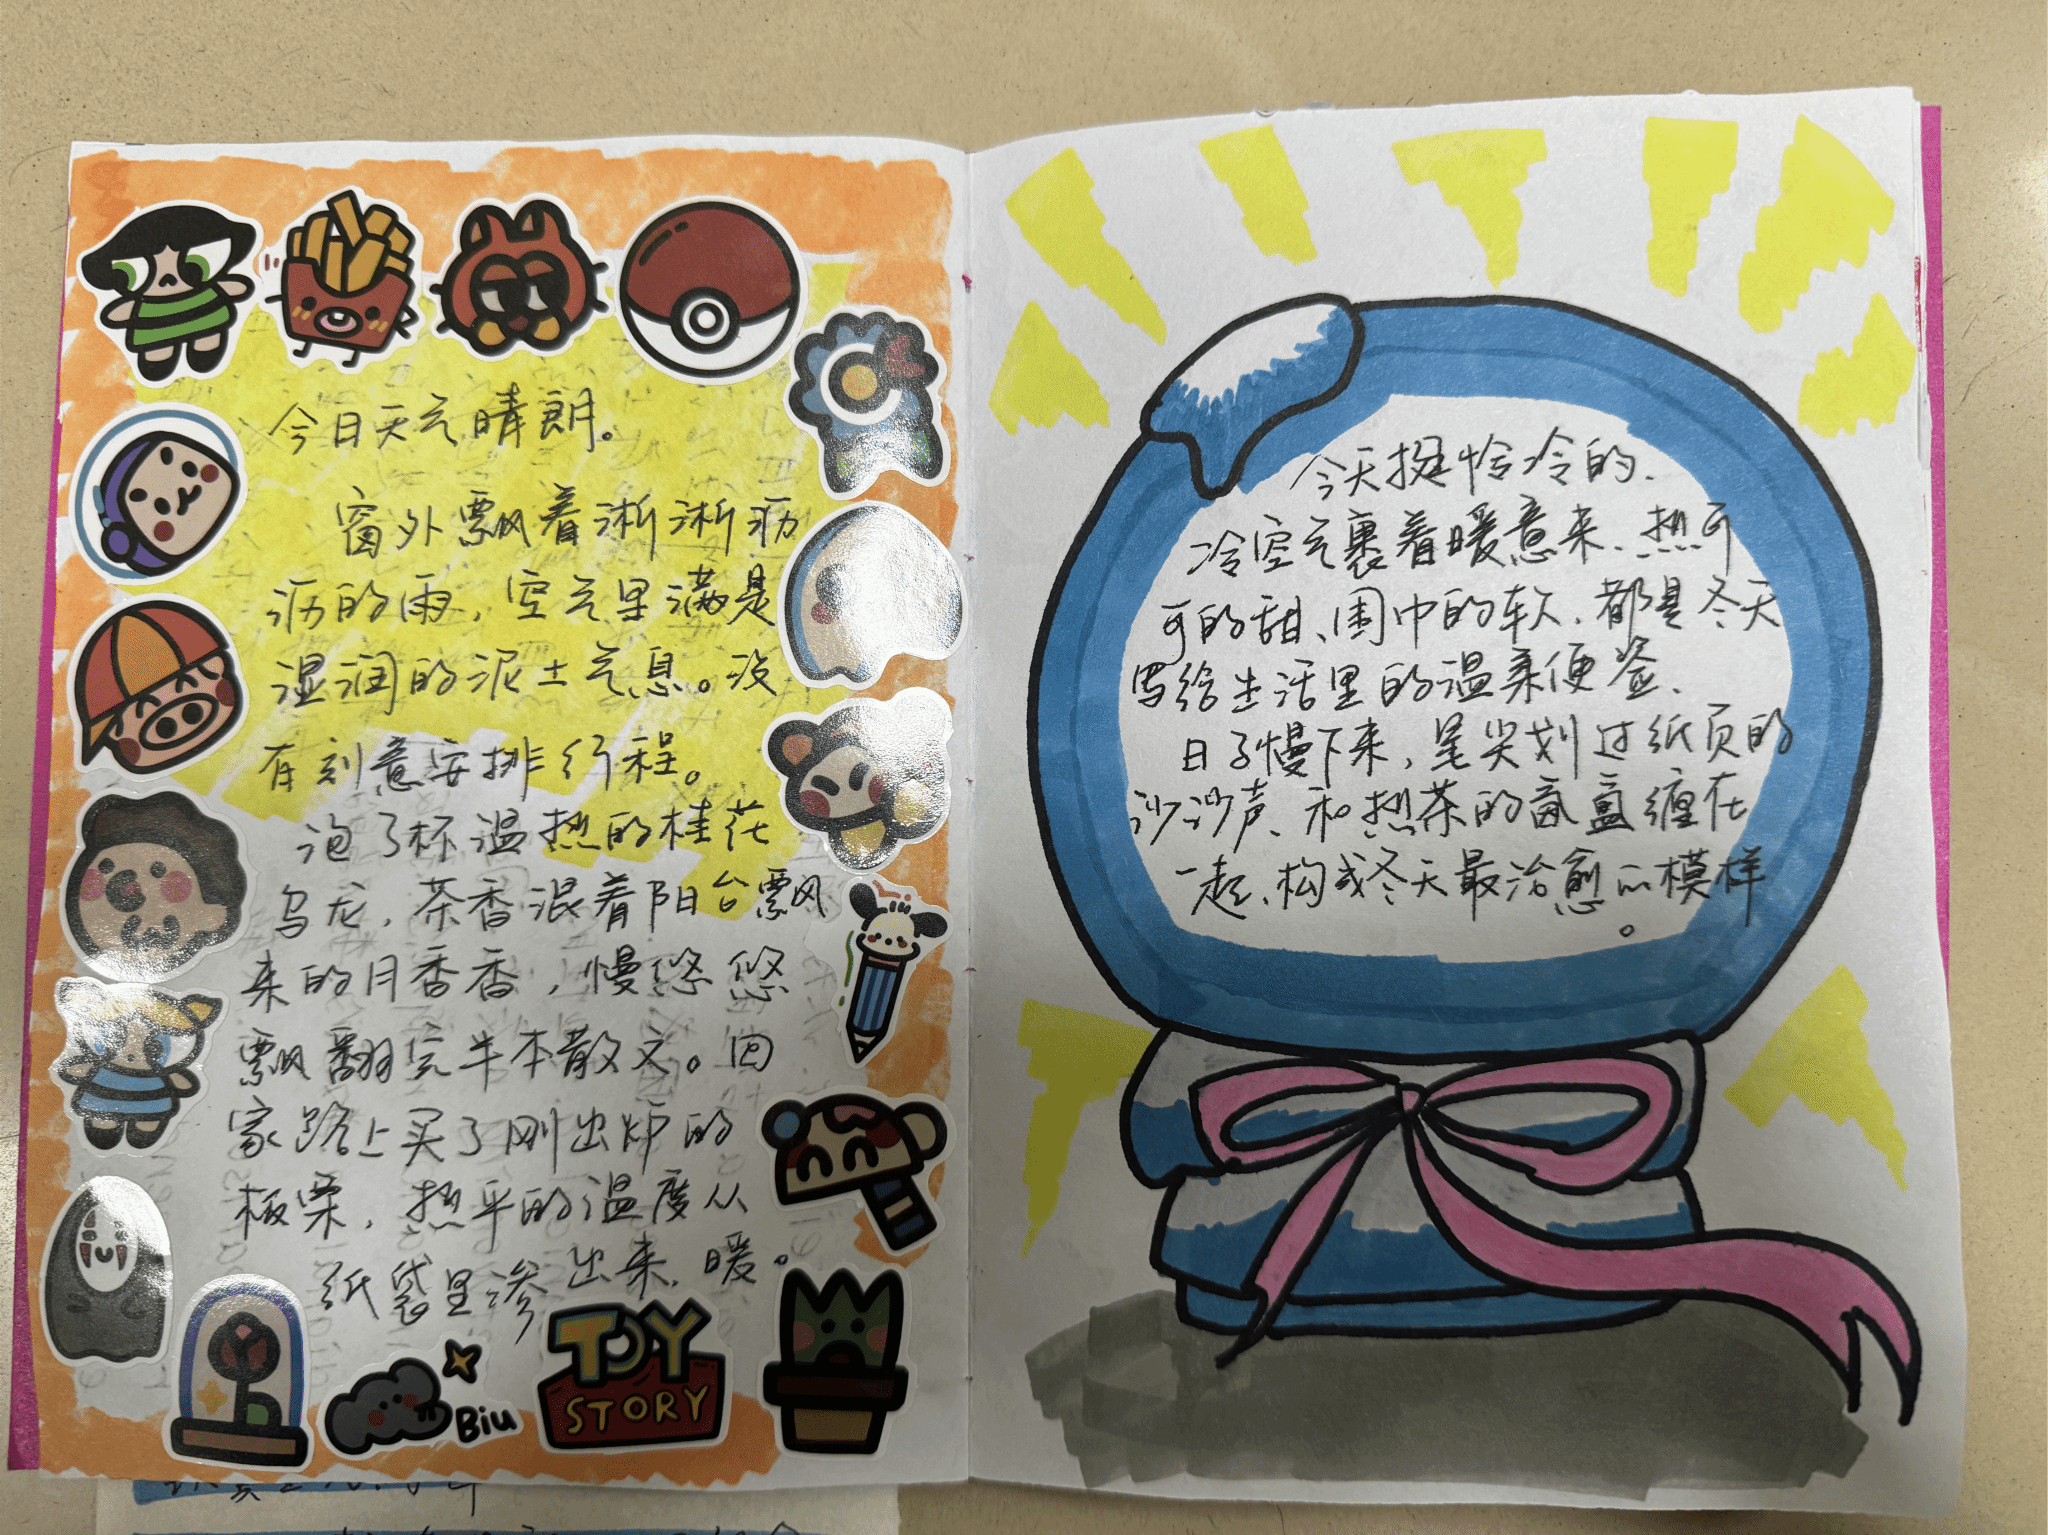 今日天气晴朗。
窗外飘着淅淅沥
沥的雨，空气里满是
湿润的泥土气息。没
有刻意安排行程。
泡了杯温热的桂花
乌龙，茶香混着阳台飘
来的月香香，慢悠悠
飘翻完半本散文。回
家路上买了刚出炉的
板栗，热乎的温度从
纸袋里渗出来，暖。
Biu
TOY
STORY
今天挺恰冷的、
冷空气裹着暖意来、热可
可的甜、围巾的软、都是冬天
写给生活里的温柔便签、
日子慢下来，笔尖划过纸页的
沙沙声、和热茶的氤氲缠在
一起、构成冬天最治愈的模样
。